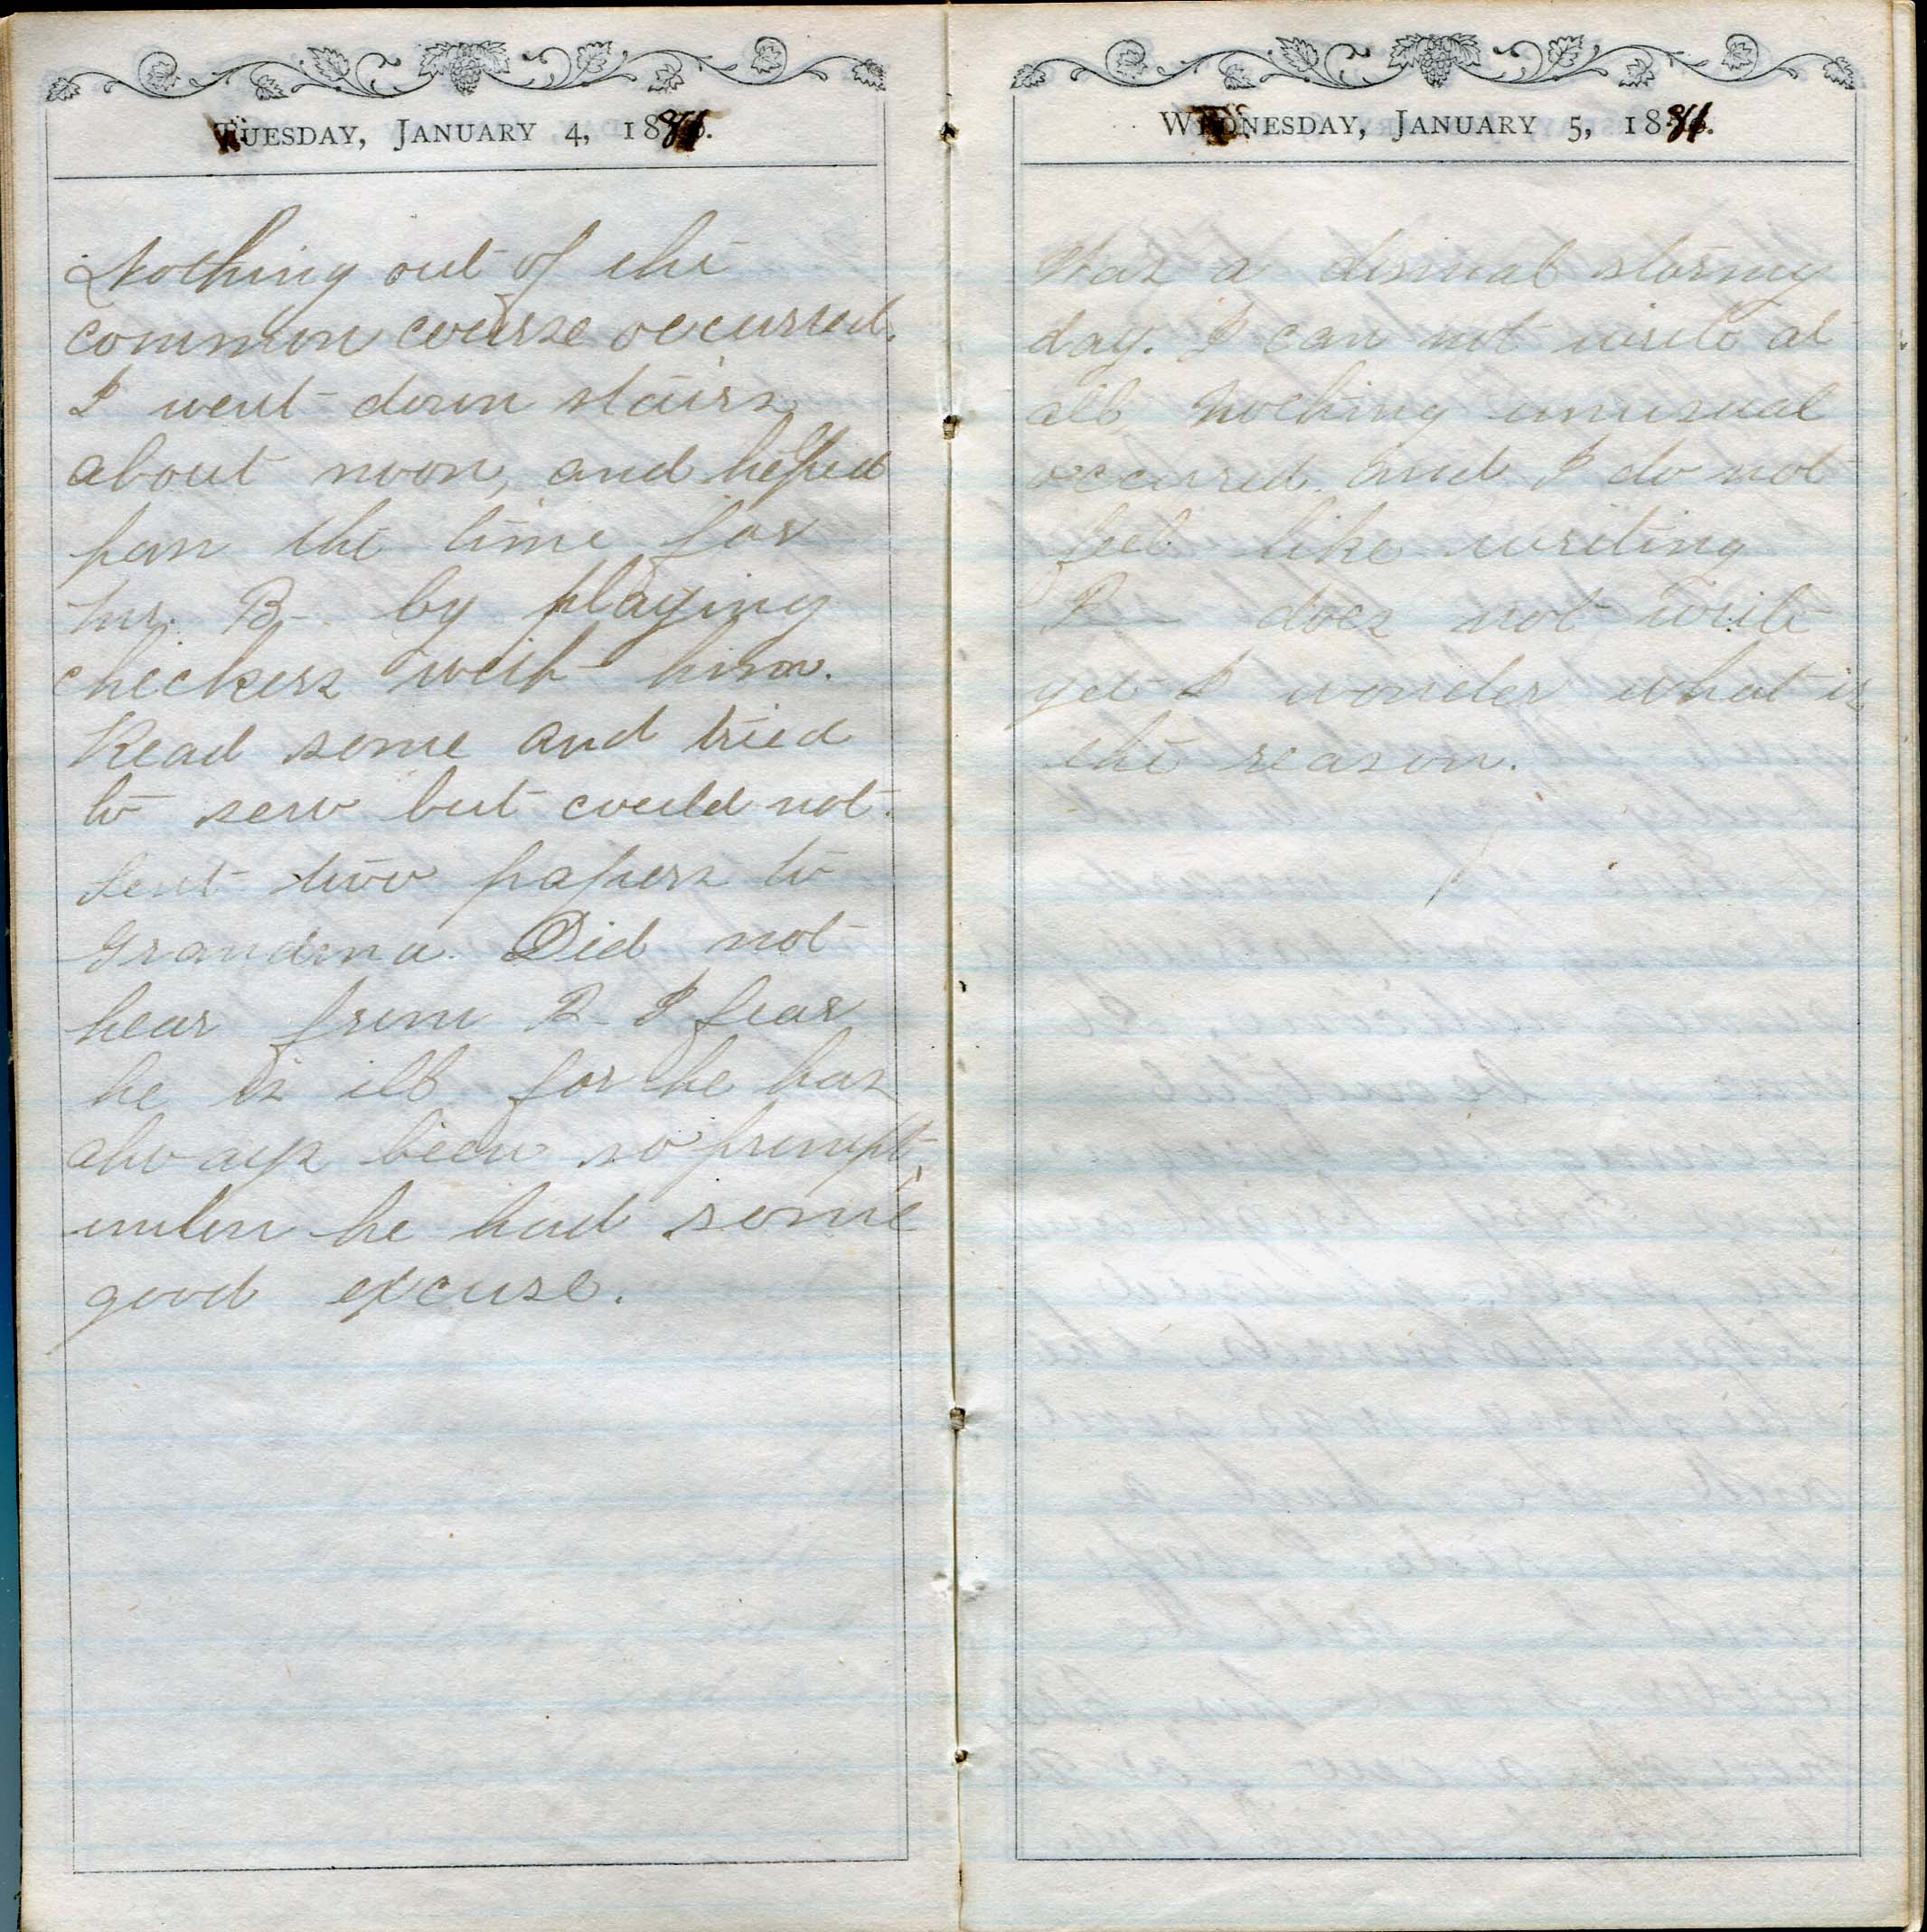 Tuesday, January 4, 1881.
Nothing out of the
common course occurred.
I went down stairs
about noon, and helped
pass the time for
Mr. B- by playing
checkers with him.
Read some and tried
to sew but could not.
Sent two papers to
Grandma. Did not
hear from R- I fear
he is ill for he has
always been so prompt,
unless he had some
good excuse.
Wednesday, January 5, 1881.
Was a dismal stormy
day. I can not write at
all, nothing unusual
occurred and I do not
feel like writing
R— does not write
yet I wonder what is
the reason.